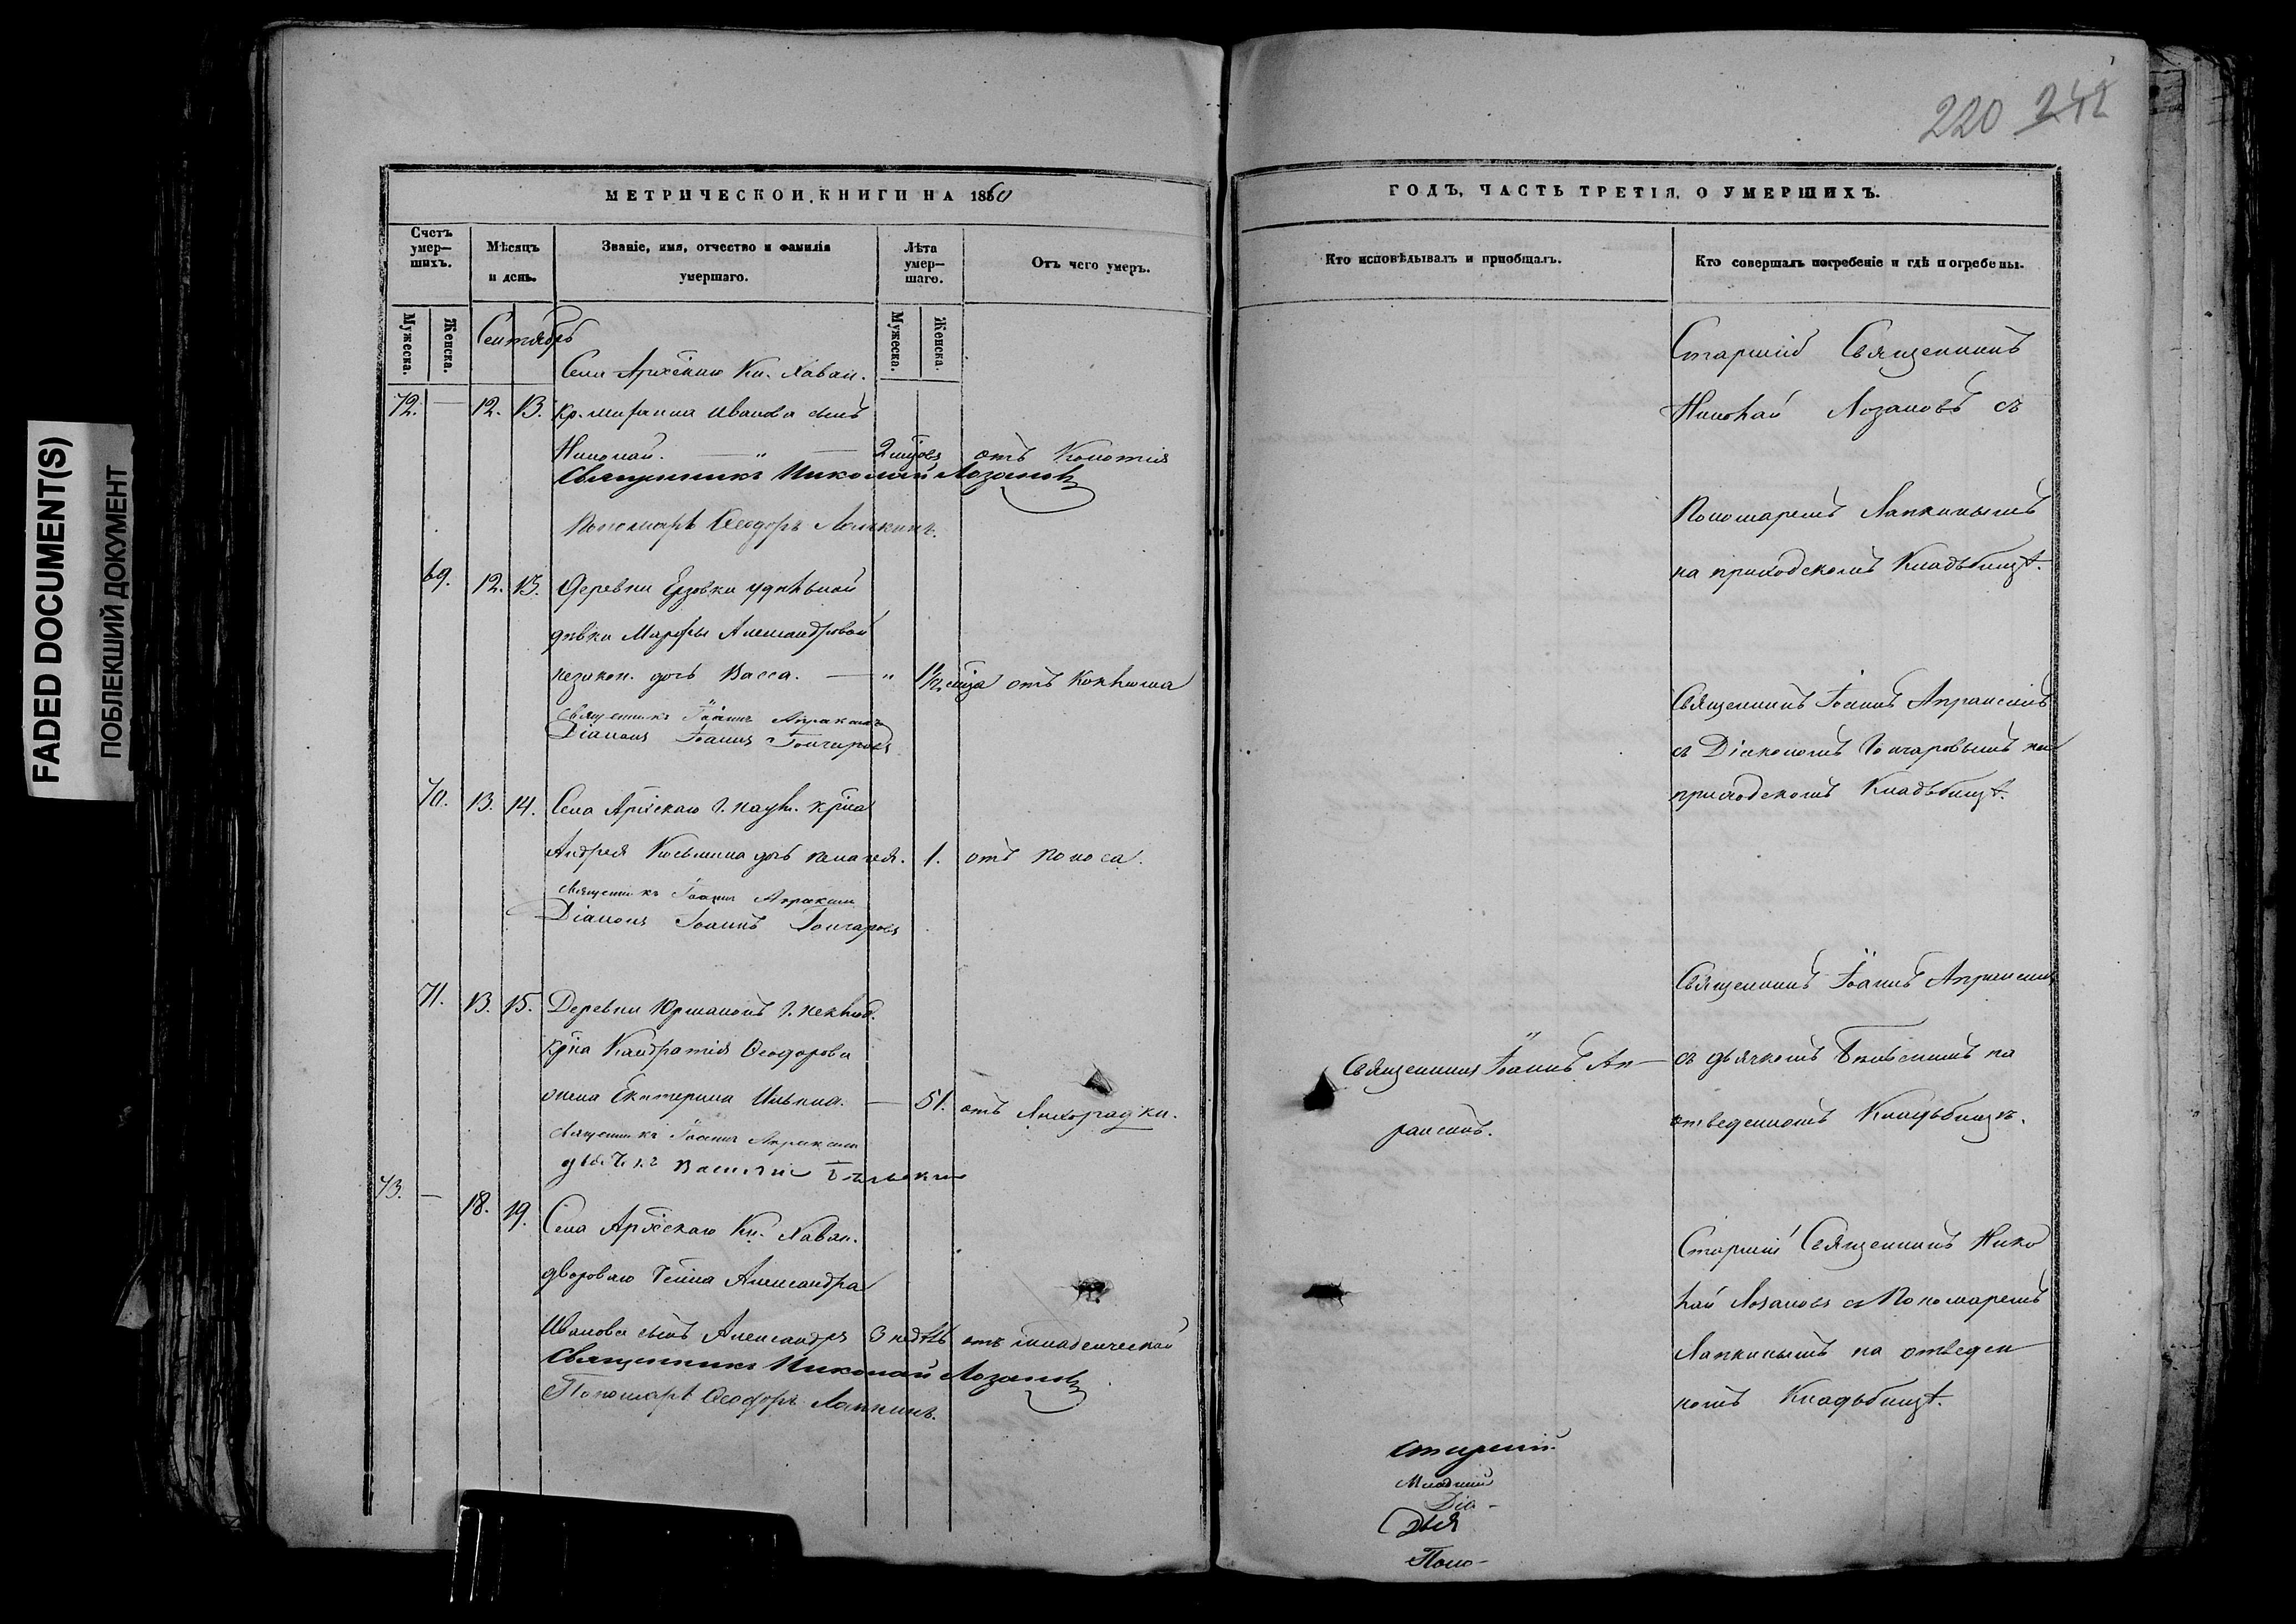 FADED DOCUMENT(S)
ПОБЛЕКШИЙ ДОКУМЕНТ
220 242
МЕТРИЧЕСКОЙ КНИГИ НА 1860
Счетъ умер—шихъ.
Мѣсяцъ и день.
Званіе, имя, отчество и фамилія умершаго.
Лѣта умер—шаго.
Отъ чего умеръ.
Мужеска.
Женска.
Мужеска.
Женска.
Сентябрь
Села Архскаго Кн. Хован.
72. — 12. 13. Кр. Иванова сынъ
Николай. — „ — 2 отъ
Священникъ Николай Лозановъ
Пономарь Ѳеодоръ Лапкинъ.
69. 12. 13. Деревни Ерзовки удѣльной
дѣвки Марфы Александровой
незакон. дочь Васса. — „ 1½ отъ Коклюша
священникъ Іоаннъ Апраксинъ
Діаконъ Іоаннъ Гончаровъ
70. 13. 14. Села Архскаго Г. крна
Андрея Косьмина дочь Пелагея. 1. отъ поноса.
священникъ Іоаннъ Апраксинъ
Діаконъ Іоаннъ Гончаровъ
71. 13. 15. Деревни Юрманокъ Г. Неклюд.
крна Кандратія Ѳеодорова
жена Екатерина Ильина. — 51. отъ Лихорадки.
священникъ Іоаннъ Апраксинъ
дьячекъ Василій Бѣльскій
73. — 18. 19. Села Архскаго Кн. Хован.
двороваго Александра
Иванова сынъ Александръ 3 недѣль отъ младенческой
Священникъ Николай Лозановъ
Пономарь Ѳеодоръ Лапкинъ.
ГОДЪ, ЧАСТЬ ТРЕТІЯ, О УМЕРШИХЪ.
Кто исповѣдывалъ и пріобщалъ.
Кто совершалъ погребеніе и гдѣ погребены.
Старшій Священникъ
Николай Лозановъ съ
Пономаремъ Лапкинымъ
на приходскомъ Кладбищѣ.
Священникъ Іоаннъ Апраксинъ
съ Діакономъ Гончаровымъ на
приходскомъ Кладбищѣ.
Священникъ Іоаннъ Апраксинъ
Священникъ Іоаннъ Ап—
раксинъ.
съ дьячкомъ Бѣльскимъ на
отведенномъ Кладбищѣ.
Старшій Священникъ Нико
лай Лозановъ съ Пономаремъ
Лапкинымъ на отведен
номъ Кладьбищѣ.
Старшій
Младшій
Діа-
Дья
Поно-